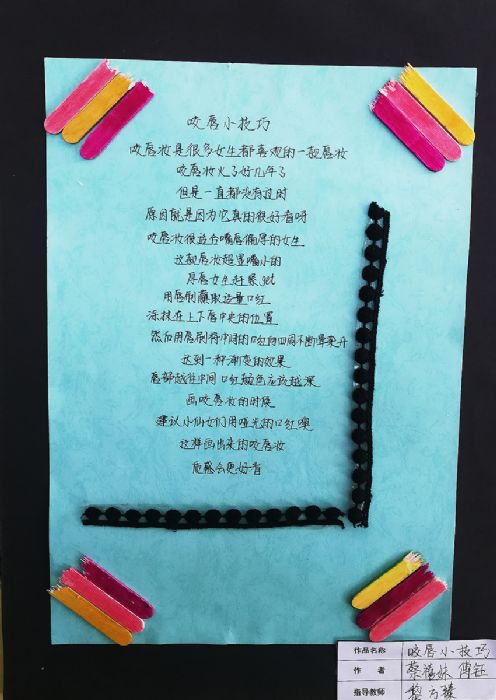 咬唇小技巧
咬唇妆是很多女生都喜欢的一款唇妆
咬唇妆火了好几年了
但是一直都没有过时
原因就是因为它真的很好看呀
咬唇妆很适合嘴唇偏厚的女生
这款唇妆超显嘴小的
厚唇女生赶紧get
用唇刷蘸取适量口红
涂抹在上下唇中央的位置
然后用唇刷将中间的口红向四周不断晕染开
达到一种渐变的效果
唇部越往中间口红颜色应该越深
画咬唇妆的时候
建议小仙女们用哑光的口红噢
这样画出来的咬唇妆
质感会更好看
作品名称 咬唇小技巧
作 者 蔡 妹 傅钰
指导教师 黎